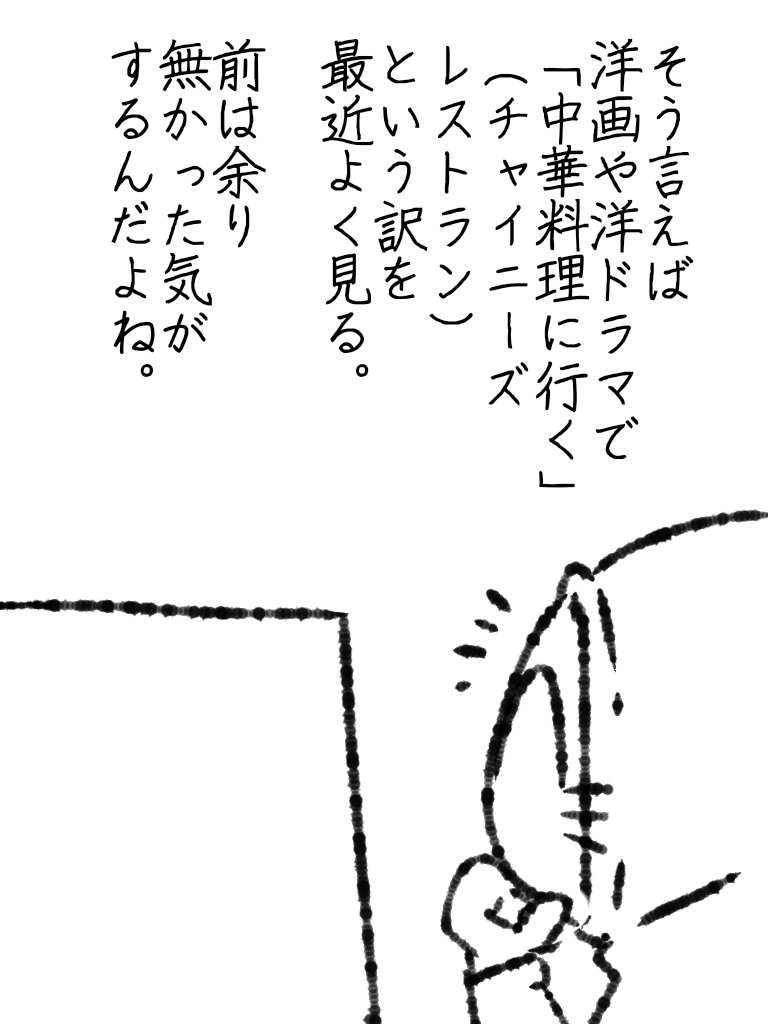 そう言えば
洋画や洋ドラマで
「中華料理に行く」
（チャイニーズ
レストラン）
という訳を
最近よく見る。
前は余り
無かった気が
するんだよね。